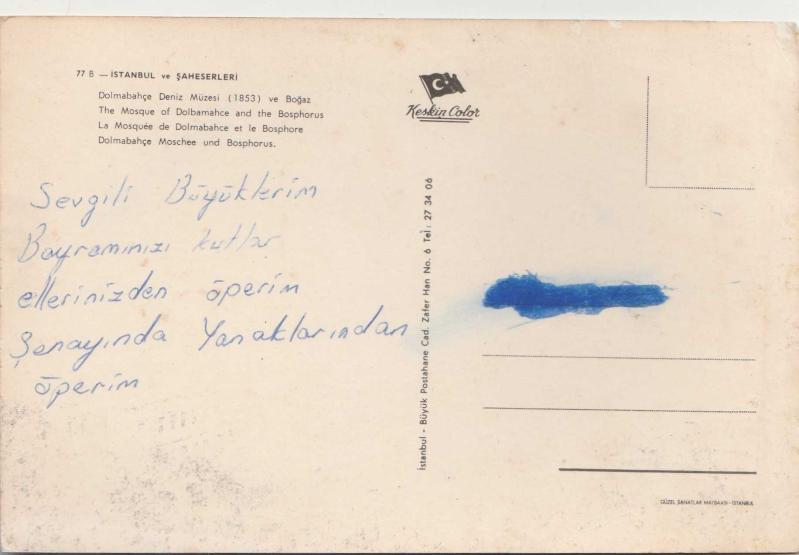 77 B — İSTANBUL ve ŞAHESERLERİ
Dolmabahçe Deniz Müzesi (1853) ve Boğaz
The Mosque of Dolbamahce and the Bosphorus
La Mosquée de Dolmabahce et le Bosphore
Dolmabahçe Moschee und Bosphorus.
Keskin Color
Sevgili Büyüklerim
Bayramınızı kutlar
ellerinizden öperim
Şenayında Yanaklarından
öperim
İstanbul - Büyük Postahane Cad. Zafer Han No. 6 Tel: 27 34 06
GÜZEL SANATLAR MATBAASI - İSTANBUL